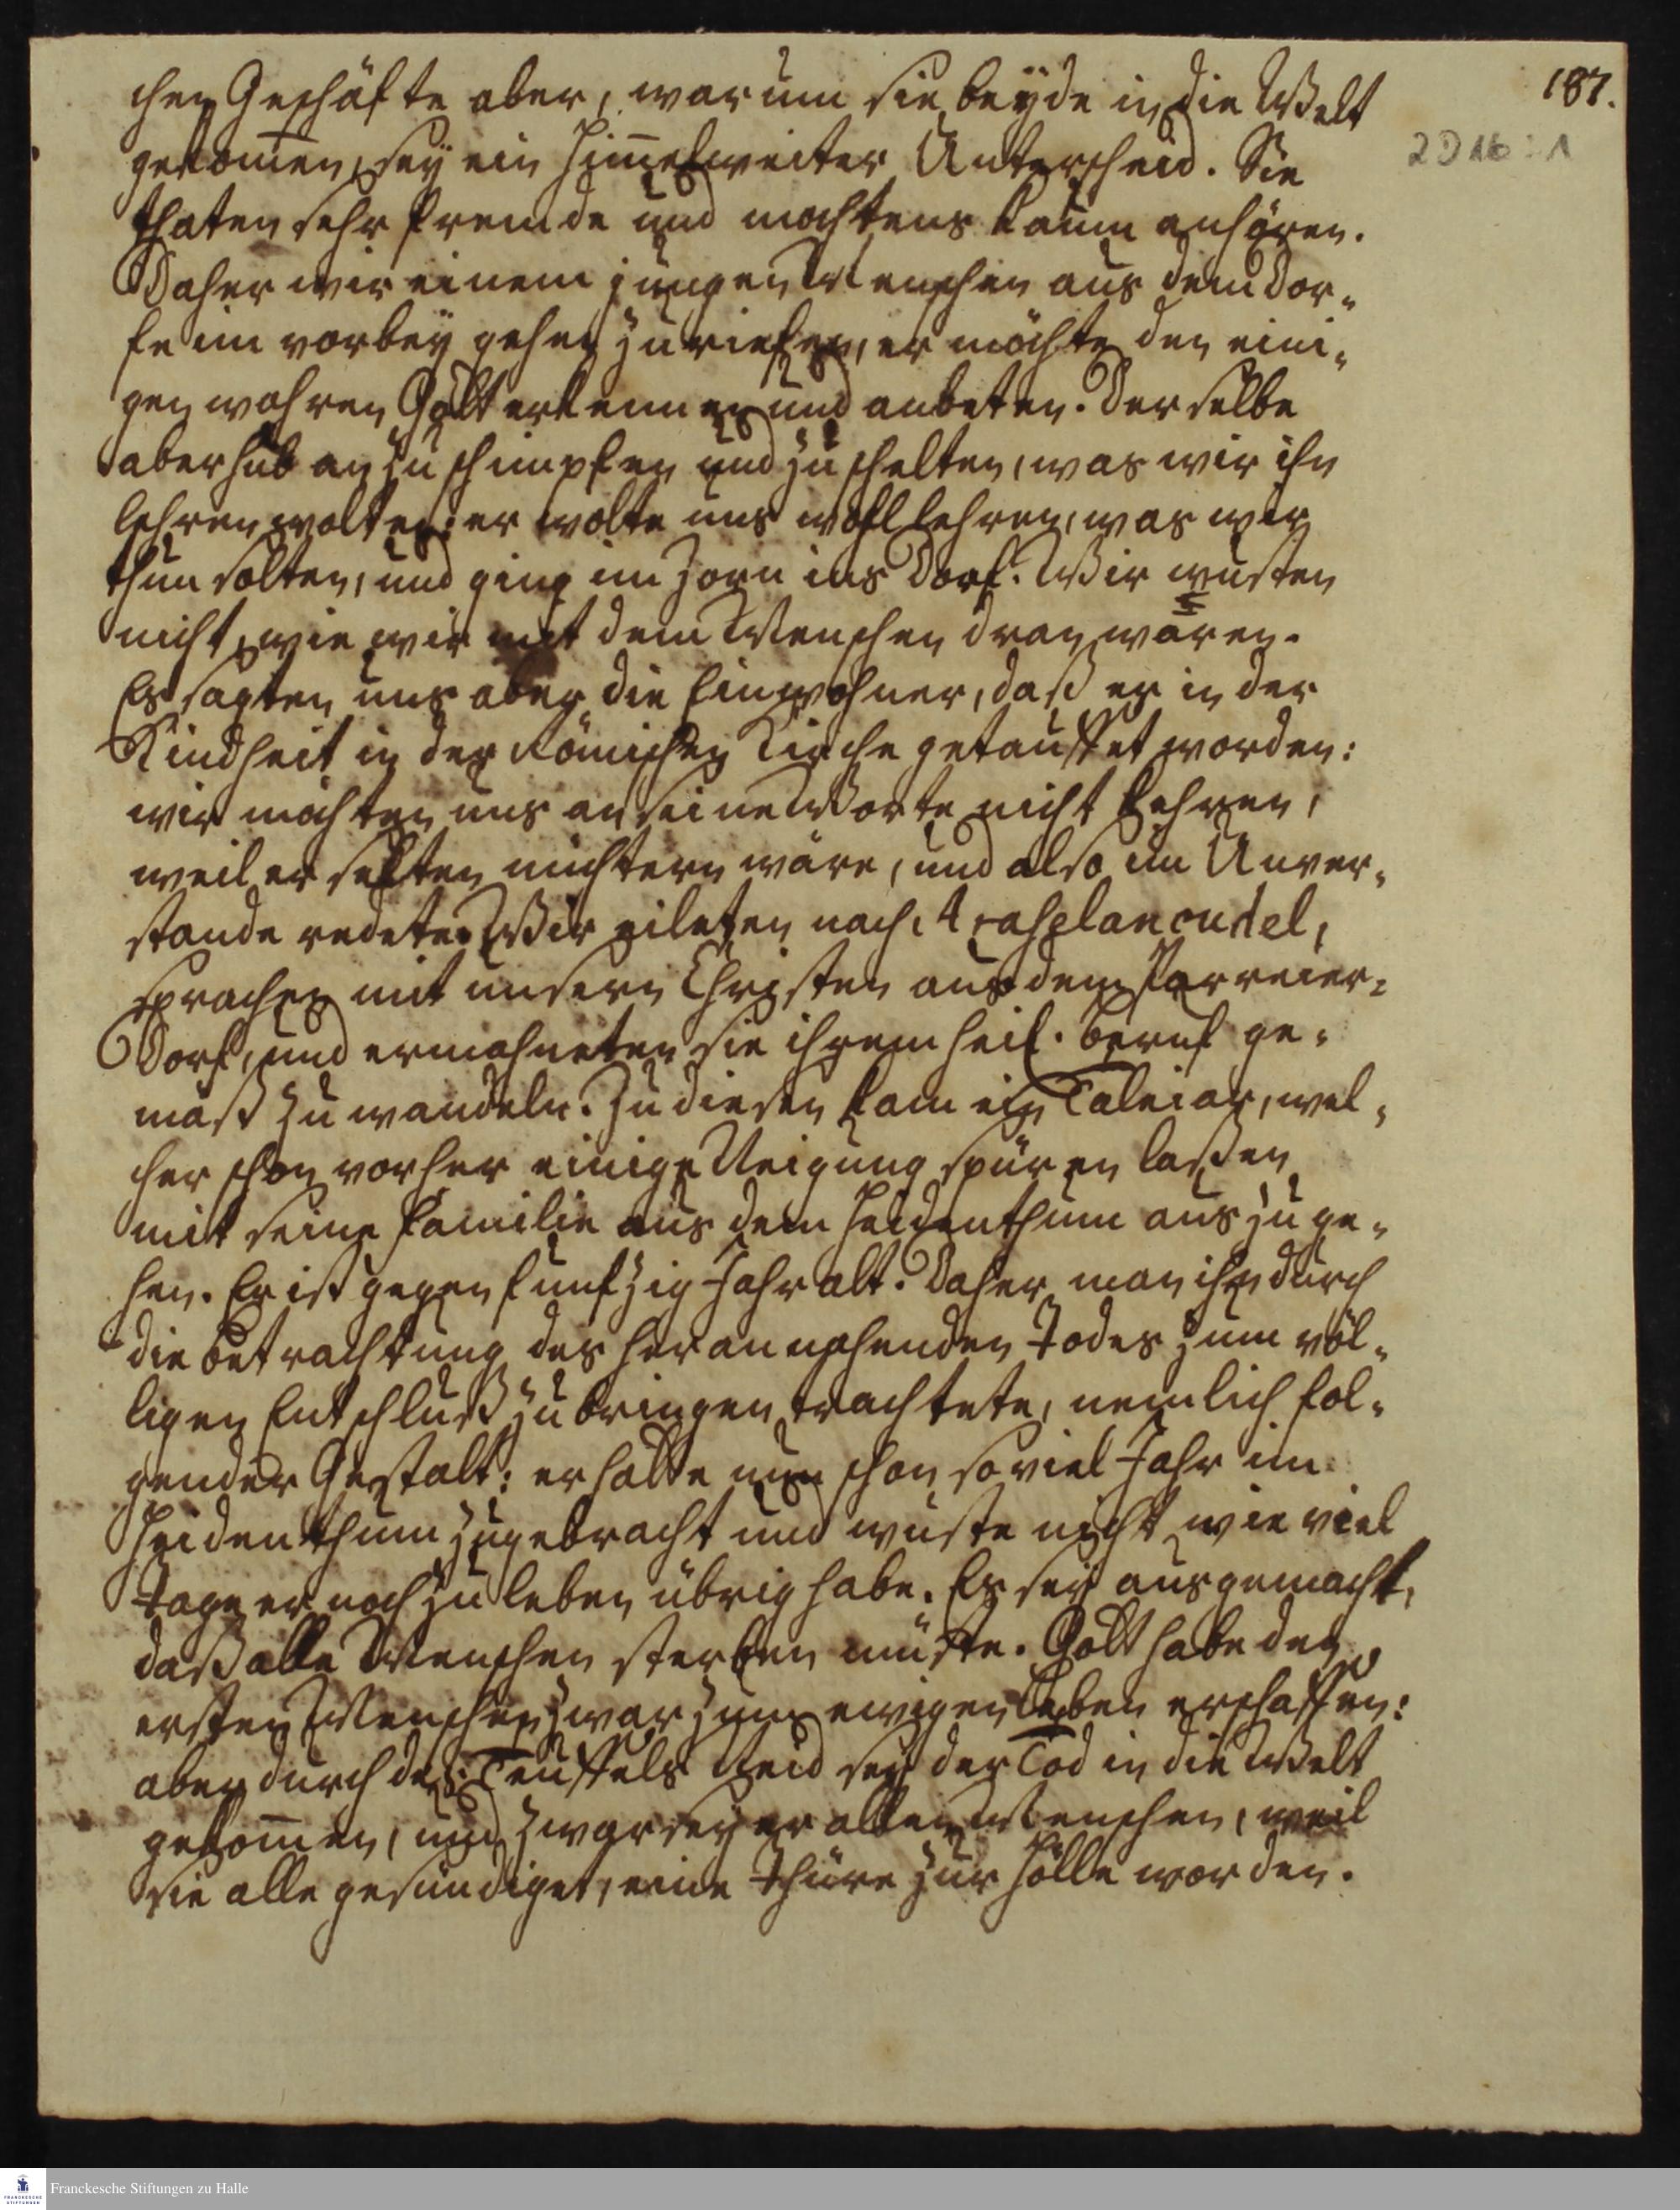 187.
2 D 16 : 1
chen Geschäfte aber, warum sie beyde in die Welt
gekom̄en, sey ein Him̄elweiter Unterscheid. Sie
thaten sehr fremde und mochtens kaum anhören.
Daher wir einem jungen Menschen aus dem Dor-
fe im vorbey gehen zurieffen, er möchte den eini-
gen wahren Gott erkennen und anbeten. Derselbe
aber hub an zu schimpfen und zu schelten, was wir ihn
lehren wolten: er wolte uns wohl lehren, was wir
thun solten, und ging im Zorn ins Dorf. Wir wusten
nicht, wie wir mit dem Menschen dran wären.
Es sagten uns aber die Einwohner, daß er in der
Kindheit in der Römischen Kirche getauffet worden:
wir möchten uns an seine Worte nicht kehren,
weil er selten nüchtern wäre, und also im Unver-
stande redete. Wir eileten nach
sprachen mit unsern Christen aus dem Parreier-
Dorf, und ermahneten sie ihrem heil. Beruf ge-
mäß zu wandeln. Zu diesen kam ein Taleiar, wel-
cher schon vorher einige Neigung spüren laßen
mit seine Familie aus dem Heidenthum auszuge-
hen. Er ist gegen funfzig Jahr alt. Daher man ihn durch
die Betrachtung des herannahenden Todes zum völ-
ligen Entschluß zu bringen trachtete, nemlich fol-
gender Gestalt: er hätte nun schon so viel Jahr im
Heidenthum zugebracht und wuste nicht wie viel
Tage er noch zu leben übrig habe. Es sey ausgemacht,
daß alle Menschen sterben müste. Gott habe den
ersten Menschen zwar zum ewigen Leben erschaffen:
aber durch des Teuffels Neid sey der Tod in die Welt
gekom̄en, und zwar sey er allen Menschen, weil
sie alle gesündiget, eine Thüre zur Hölle worden.
Franckesche Stiftungen zu Halle